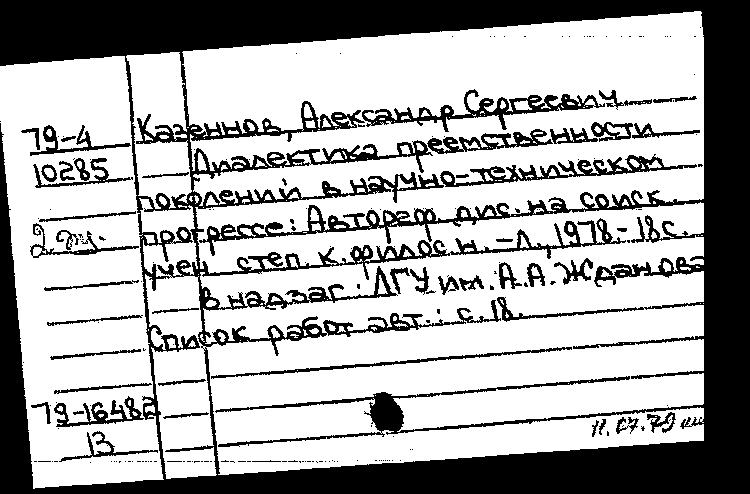 79-4
10285
2 эк.
Казеннов, Александр Сергеевич
Диалектика преемственности
поколений в научно-техническом
прогрессе: Автореф. дис. на соиск.
учен. степ. к. филос. н. - Л., 1978. - 18 с.
В надзаг.: ЛГУ им. А.А. Жданова
Список работ авт.: с. 18.
79-16482
13
11.07.79